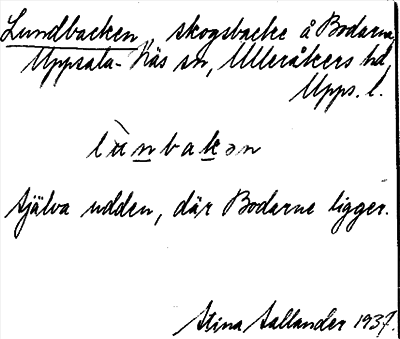 Lundbacken, skogsbacke å Bodarna,
Uppsala-Näs sn, Ulleråkers hd,
Upps. l.
lùnbakən
själva udden, där Bodarne ligger.
Stina Sallander 1937.